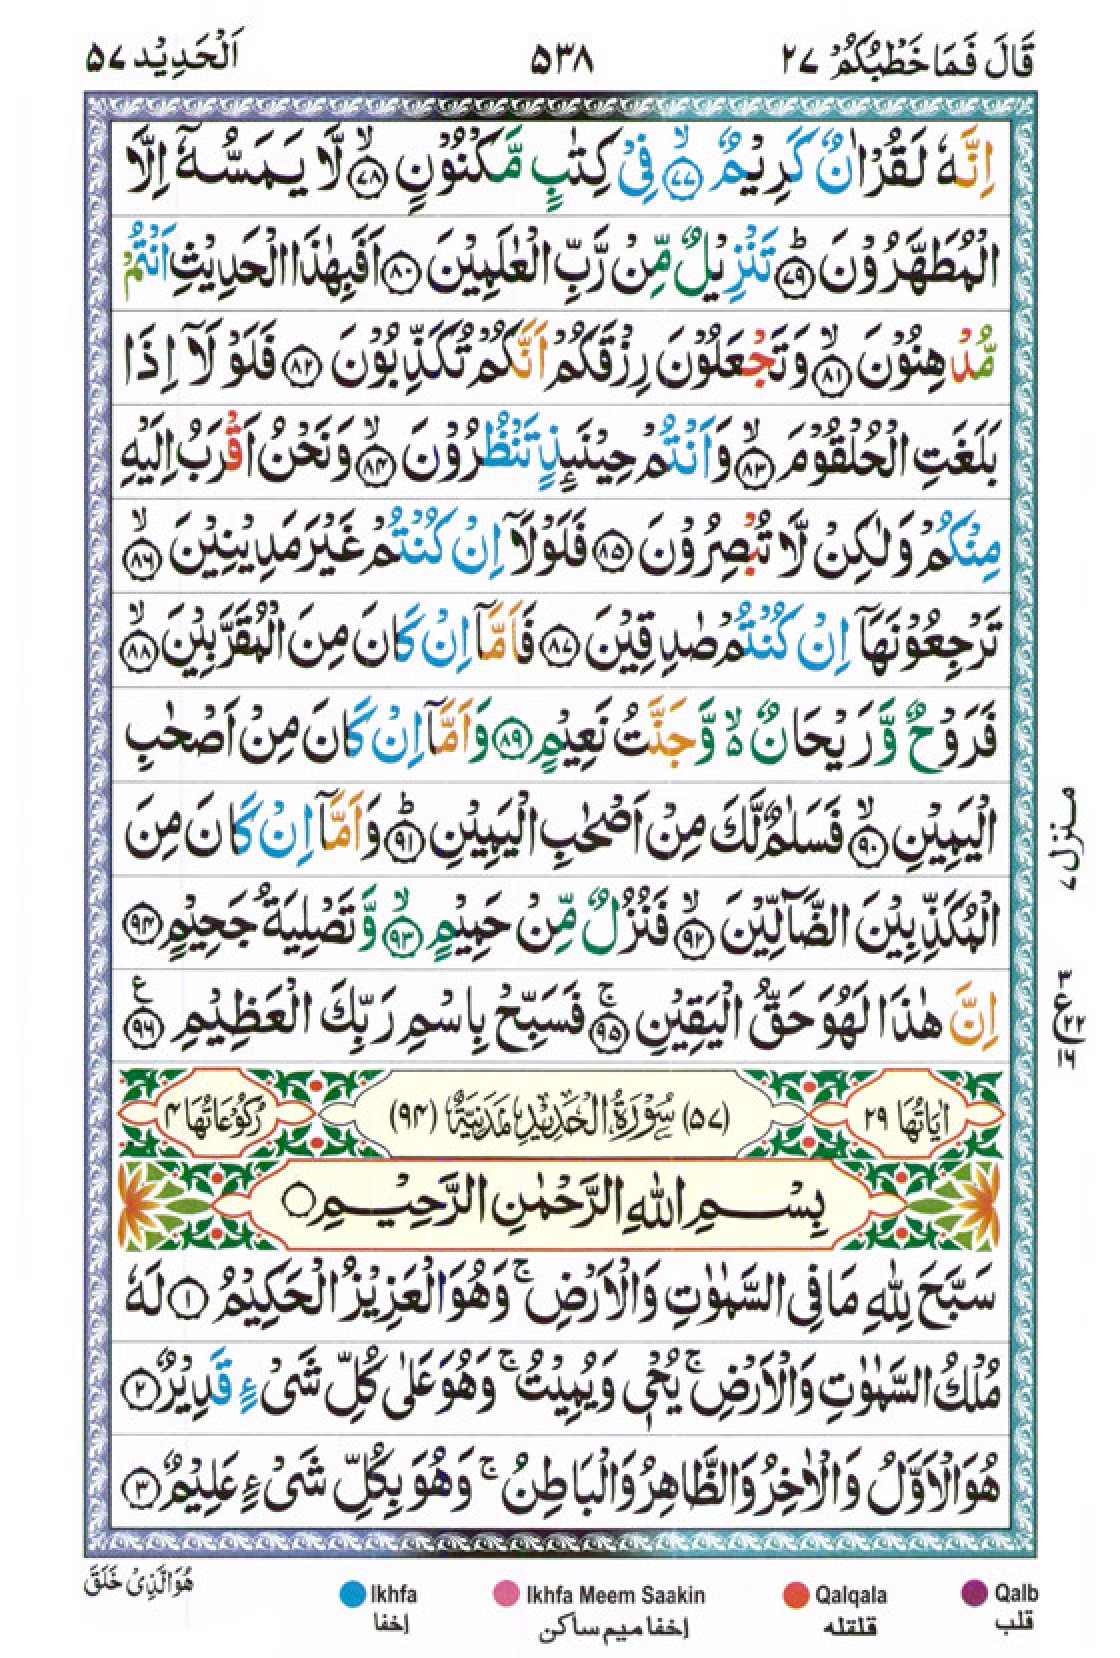 قَالَ فَمَا خَطْبُكُمْ ۲۷
۵۳۸
اَلْحَدِيْد ۵۷
اِنَّهٗ لَقُرْاٰنٌ كَرِيْمٌ ۙ﴿۷۷﴾ فِیْ كِتٰبٍ مَّكْنُوْنٍ ۙ﴿۷۸﴾ لَّا يَمَسُّهٗۤ اِلَّا
الْمُطَهَّرُوْنَ ؕ﴿۷۹﴾ تَنْزِيْلٌ مِّنْ رَّبِّ الْعٰلَمِيْنَ ﴿۸۰﴾ اَفَبِهٰذَا الْحَدِيْثِ اَنْتُمْ
مُّدْهِنُوْنَ ۙ﴿۸۱﴾ وَتَجْعَلُوْنَ رِزْقَكُمْ اَنَّكُمْ تُكَذِّبُوْنَ ﴿۸۲﴾ فَلَوْ لَاۤ اِذَا
بَلَغَتِ الْحُلْقُوْمَ ۙ﴿۸۳﴾ وَاَنْتُمْ حِيْنَىِٕذٍ تَنْظُرُوْنَ ۙ﴿۸۴﴾ وَنَحْنُ اَقْرَبُ اِلَيْهِ
مِنْكُمْ وَلٰكِنْ لَّا تُبْصِرُوْنَ ﴿۸۵﴾ فَلَوْلَاۤ اِنْ كُنْتُمْ غَيْرَ مَدِيْنِيْنَ ۙ﴿۸۶﴾
تَرْجِعُوْنَهَاۤ اِنْ كُنْتُمْ صٰدِقِيْنَ ﴿۸۷﴾ فَاَمَّاۤ اِنْ كَانَ مِنَ الْمُقَرَّبِيْنَ ۙ﴿۸۸﴾
فَرَوْحٌ وَّرَيْحَانٌ ۙ۬ وَّجَنَّتُ نَعِيْمٍ ﴿۸۹﴾ وَاَمَّاۤ اِنْ كَانَ مِنْ اَصْحٰبِ
الْيَمِيْنِ ۙ﴿۹۰﴾ فَسَلٰمٌ لَّكَ مِنْ اَصْحٰبِ الْيَمِيْنِ ؕ﴿۹۱﴾ وَاَمَّاۤ اِنْ كَانَ مِنَ
الْمُكَذِّبِيْنَ الضَّآلِّيْنَ ۙ﴿۹۲﴾ فَنُزُلٌ مِّنْ حَمِيْمٍ ۙ﴿۹۳﴾ وَّتَصْلِيَةُ جَحِيْمٍ ﴿۹۴﴾
اِنَّ هٰذَا لَهُوَ حَقُّ الْيَقِيْنِ ۚ﴿۹۵﴾ فَسَبِّحْ بِاسْمِ رَبِّكَ الْعَظِيْمِ ﴿۹۶﴾ ع
منزل ۷
۳
ع ۲۲
۱۶
اٰيَاتُهَا ۲۹
(۵۷) سُوْرَةُ الْحَدِيْدِ مَدَنِيَّةٌ (۹۴)
رُكُوْعَاتُهَا ۴
بِسْمِ اللّٰهِ الرَّحْمٰنِ الرَّحِيْمِ ○
سَبَّحَ لِلّٰهِ مَا فِى السَّمٰوٰتِ وَالْاَرْضِ ۚ وَهُوَ الْعَزِيْزُ الْحَكِيْمُ ﴿۱﴾ لَهٗ
مُلْكُ السَّمٰوٰتِ وَالْاَرْضِ ۚ يُحْیٖ وَيُمِيْتُ ۚ وَهُوَ عَلٰى كُلِّ شَىْءٍ قَدِيْرٌ ﴿۲﴾
هُوَ الْاَوَّلُ وَالْاٰخِرُ وَالظَّاهِرُ وَالْبَاطِنُ ۚ وَهُوَ بِكُلِّ شَىْءٍ عَلِيْمٌ ﴿۳﴾
هُوَ الَّذِیْ خَلَقَ
Ikhfa
Ikhfa Meem Saakin
Qalqala
Qalb
إخفا
إخفا میم ساکن
قلقله
قلب